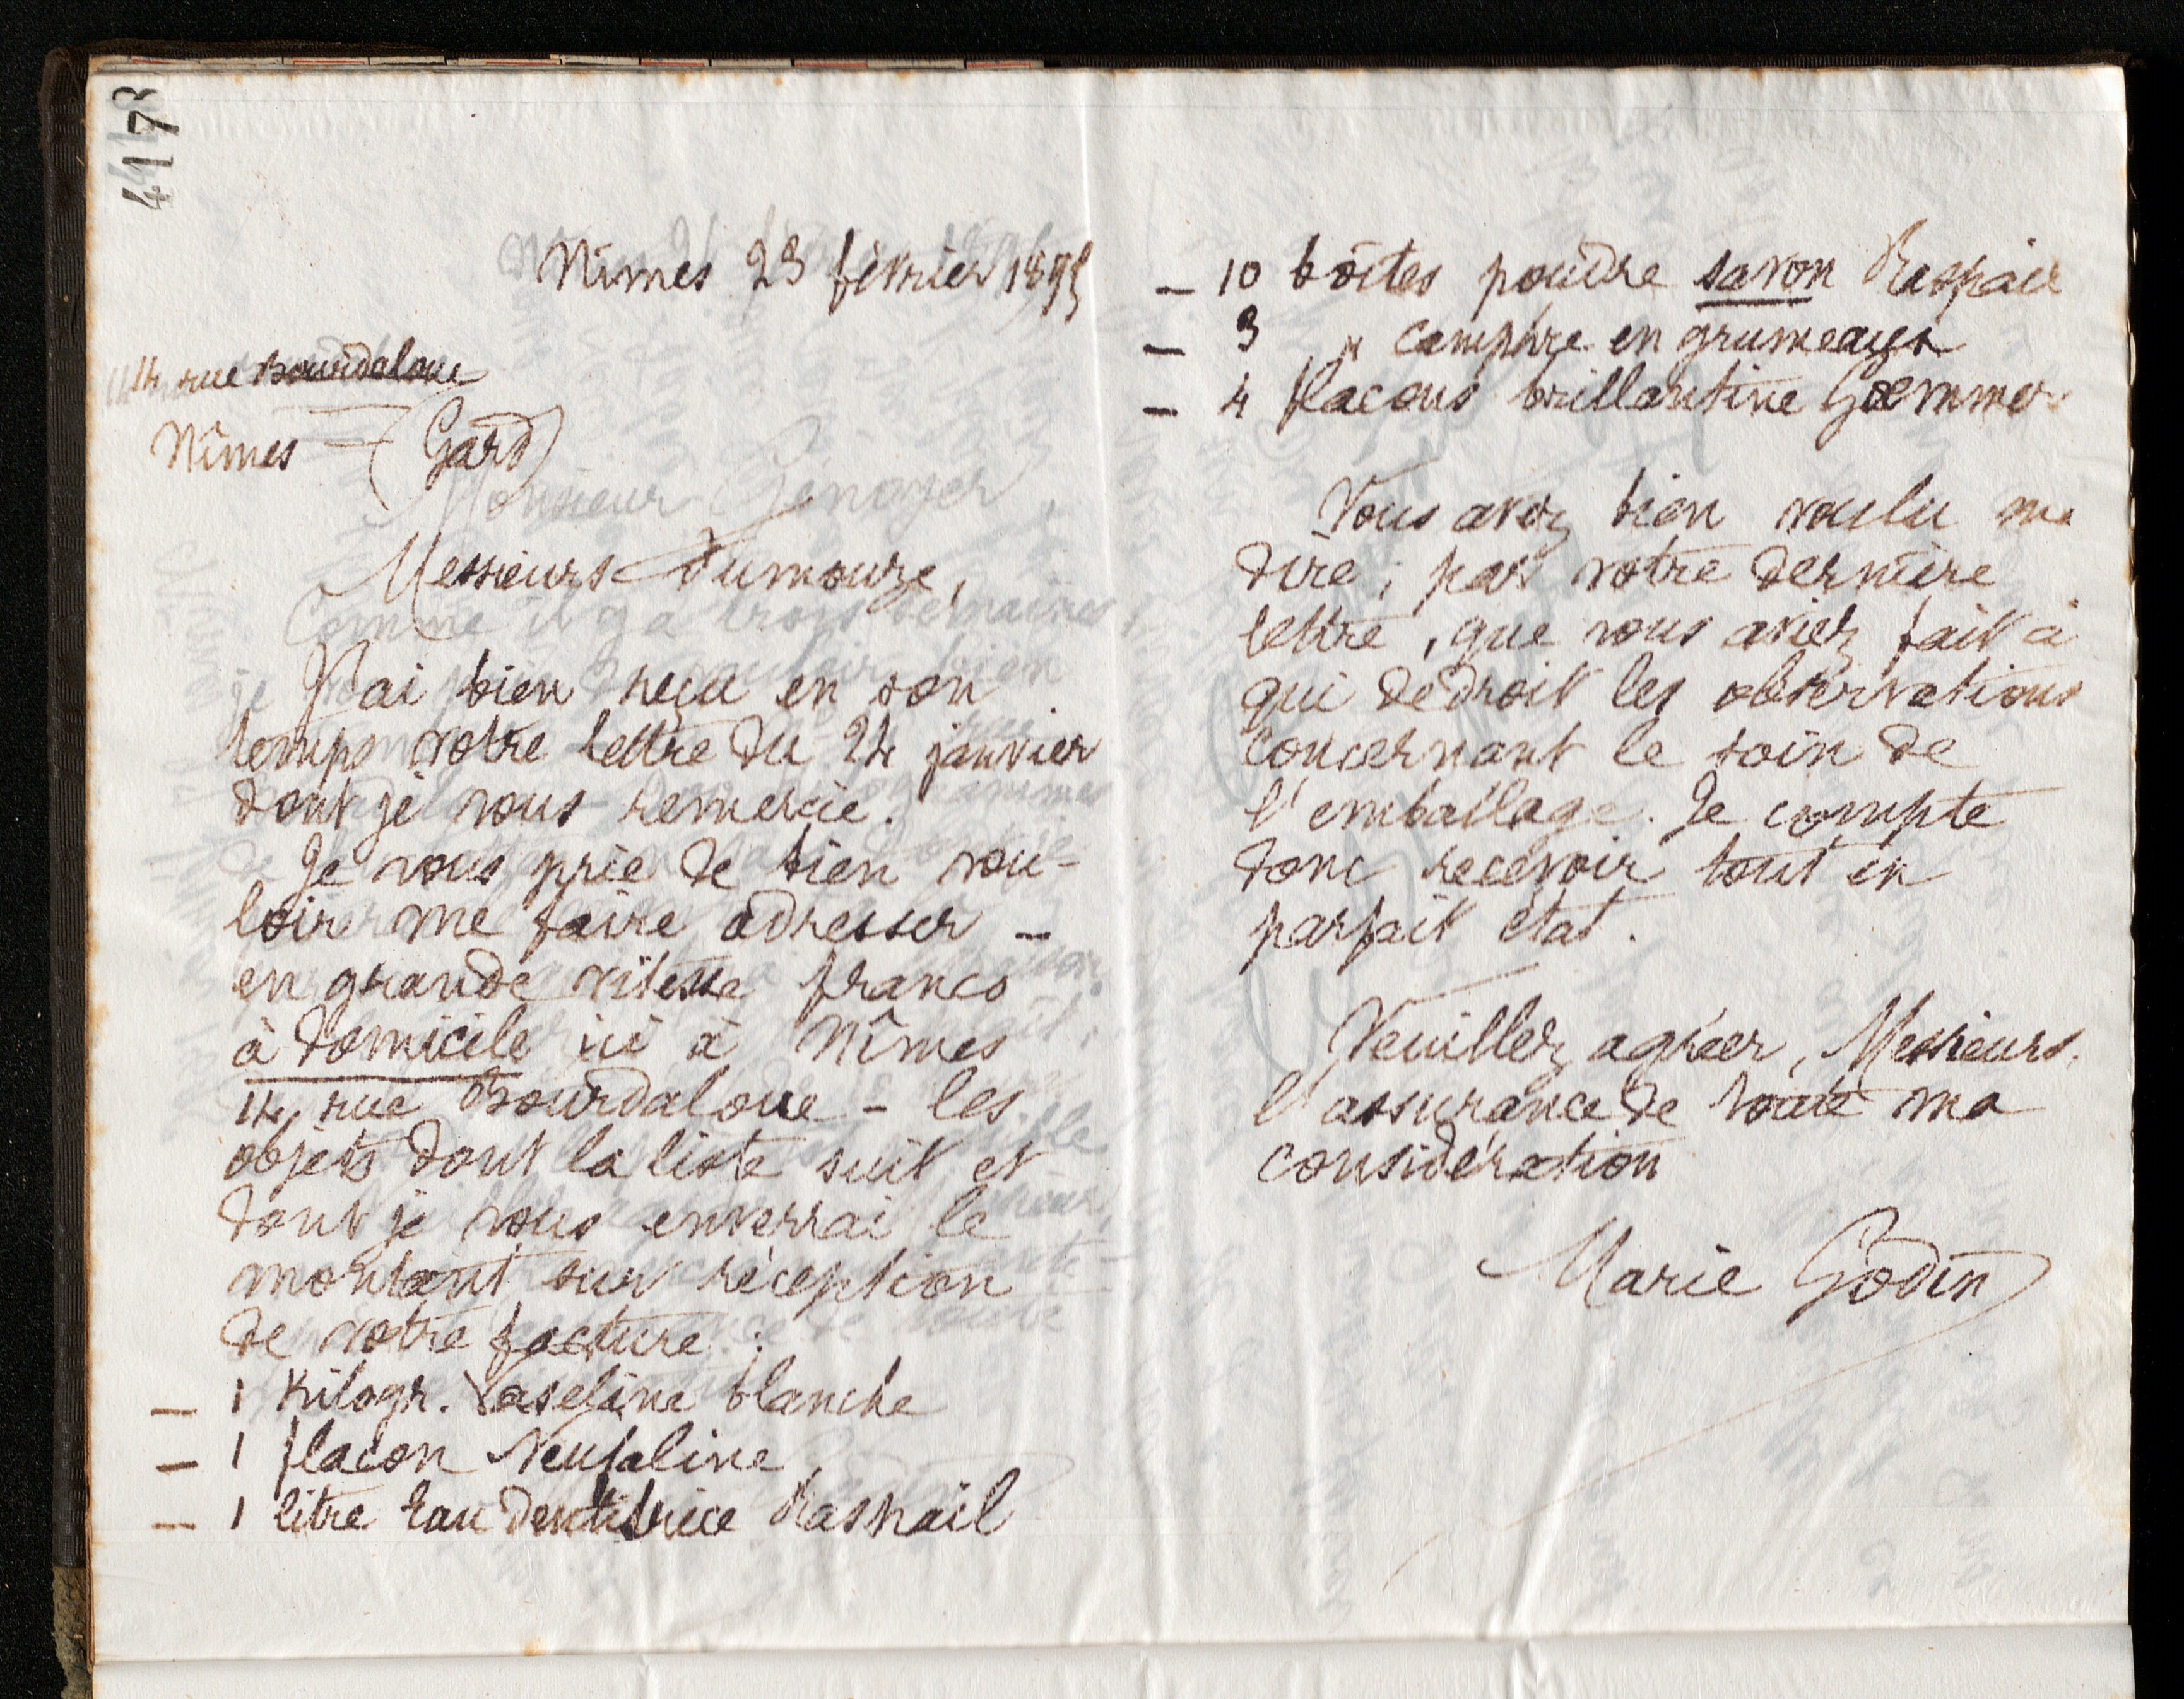 417
Nîmes 23 février 1895
14 rue Bourdaloue
Nîmes (Gard)
Messieurs Dumouze,
J'ai bien reçu en son
temps votre lettre du 24 janvier
dont je vous remercie.
Je vous prie de bien vou-
loir me faire adresser -
en grande vitesse franco
à domicile ici à Nîmes
14, rue Bourdaloue - les
objets dont la liste suit et
dont je vous enverrai le
montant sur réception
de votre facture :
- 1 Kilogr. Vaseline blanche
- 1 flacon Neufaline
- 1 litre Eau dentifrice Raspail
- 10 boîtes poudre savon Raspail
- 3 " camphre en grumeaux
- 4 flacons brillantine
Vous avez bien voulu me
dire, par votre dernière
lettre, que vous aviez fait à
qui de droit les observations
concernant le soin de
l'emballage. Je compte
donc recevoir tout en
parfait état.
Veuillez agréer, Messieurs,
l'assurance de toute ma
considération
Marie Godin